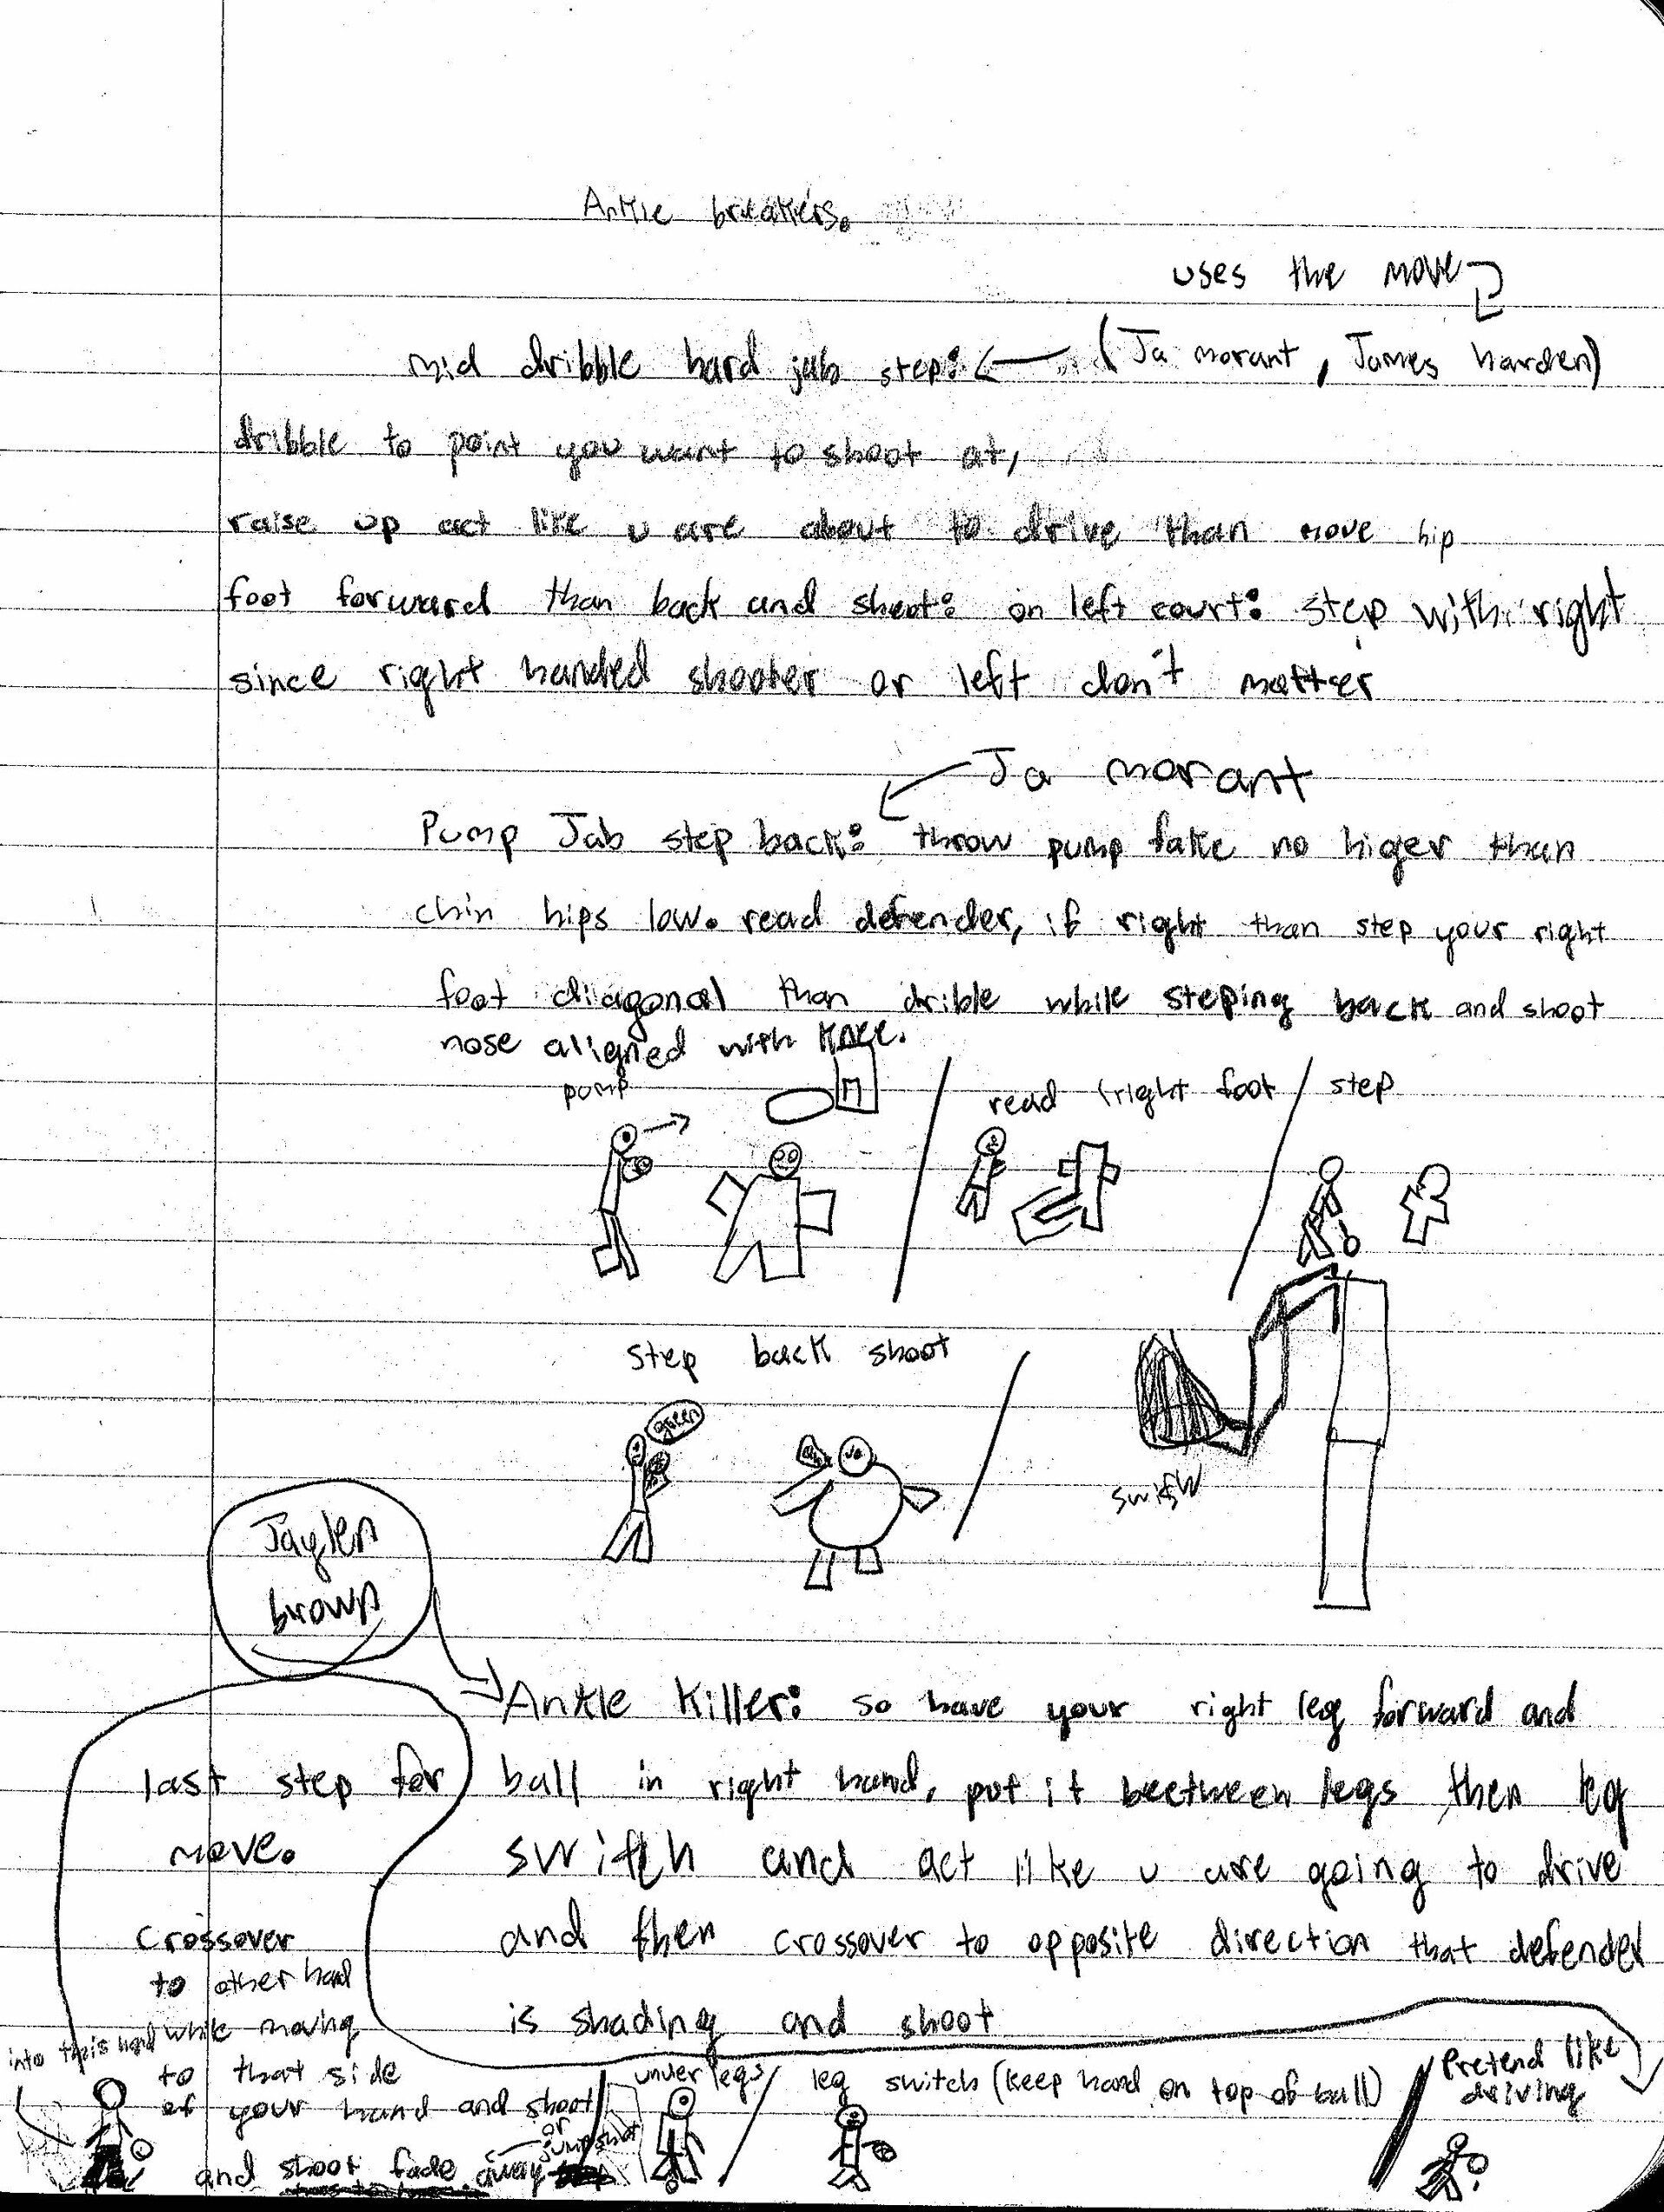 Ankle breakers.
uses the move
mid dribble hard jab step: (Ja morant, James harden)
dribble to point you want to shoot at,
raise up act like u are about to drive than move hip
foot forward than back and shoot: on left court: step with right
since right handed shooter or left don't matter
Ja morant
Pump Jab step back: throw pump fake no higer than
chin hips low. read defender, if right than step your right
foot diagonal than drible while steping back and shoot
nose aligned with knee.
pump
read (right foot / step
step back shoot
green
Jaylen
brown
Ankle Killer: so have your right leg forward and
ball in right hand, put it beetween legs then leg
switch and act like u are going to drive
and then crossover to opposite direction that defender
is shading and shoot
last step for
move.
crossover
to other hand
while moving
to that side
of your hand and shoot
or
jumpshot
and shoot fade away
into this hand
under legs
leg switch (keep hand on top of ball)
Pretend like
driving